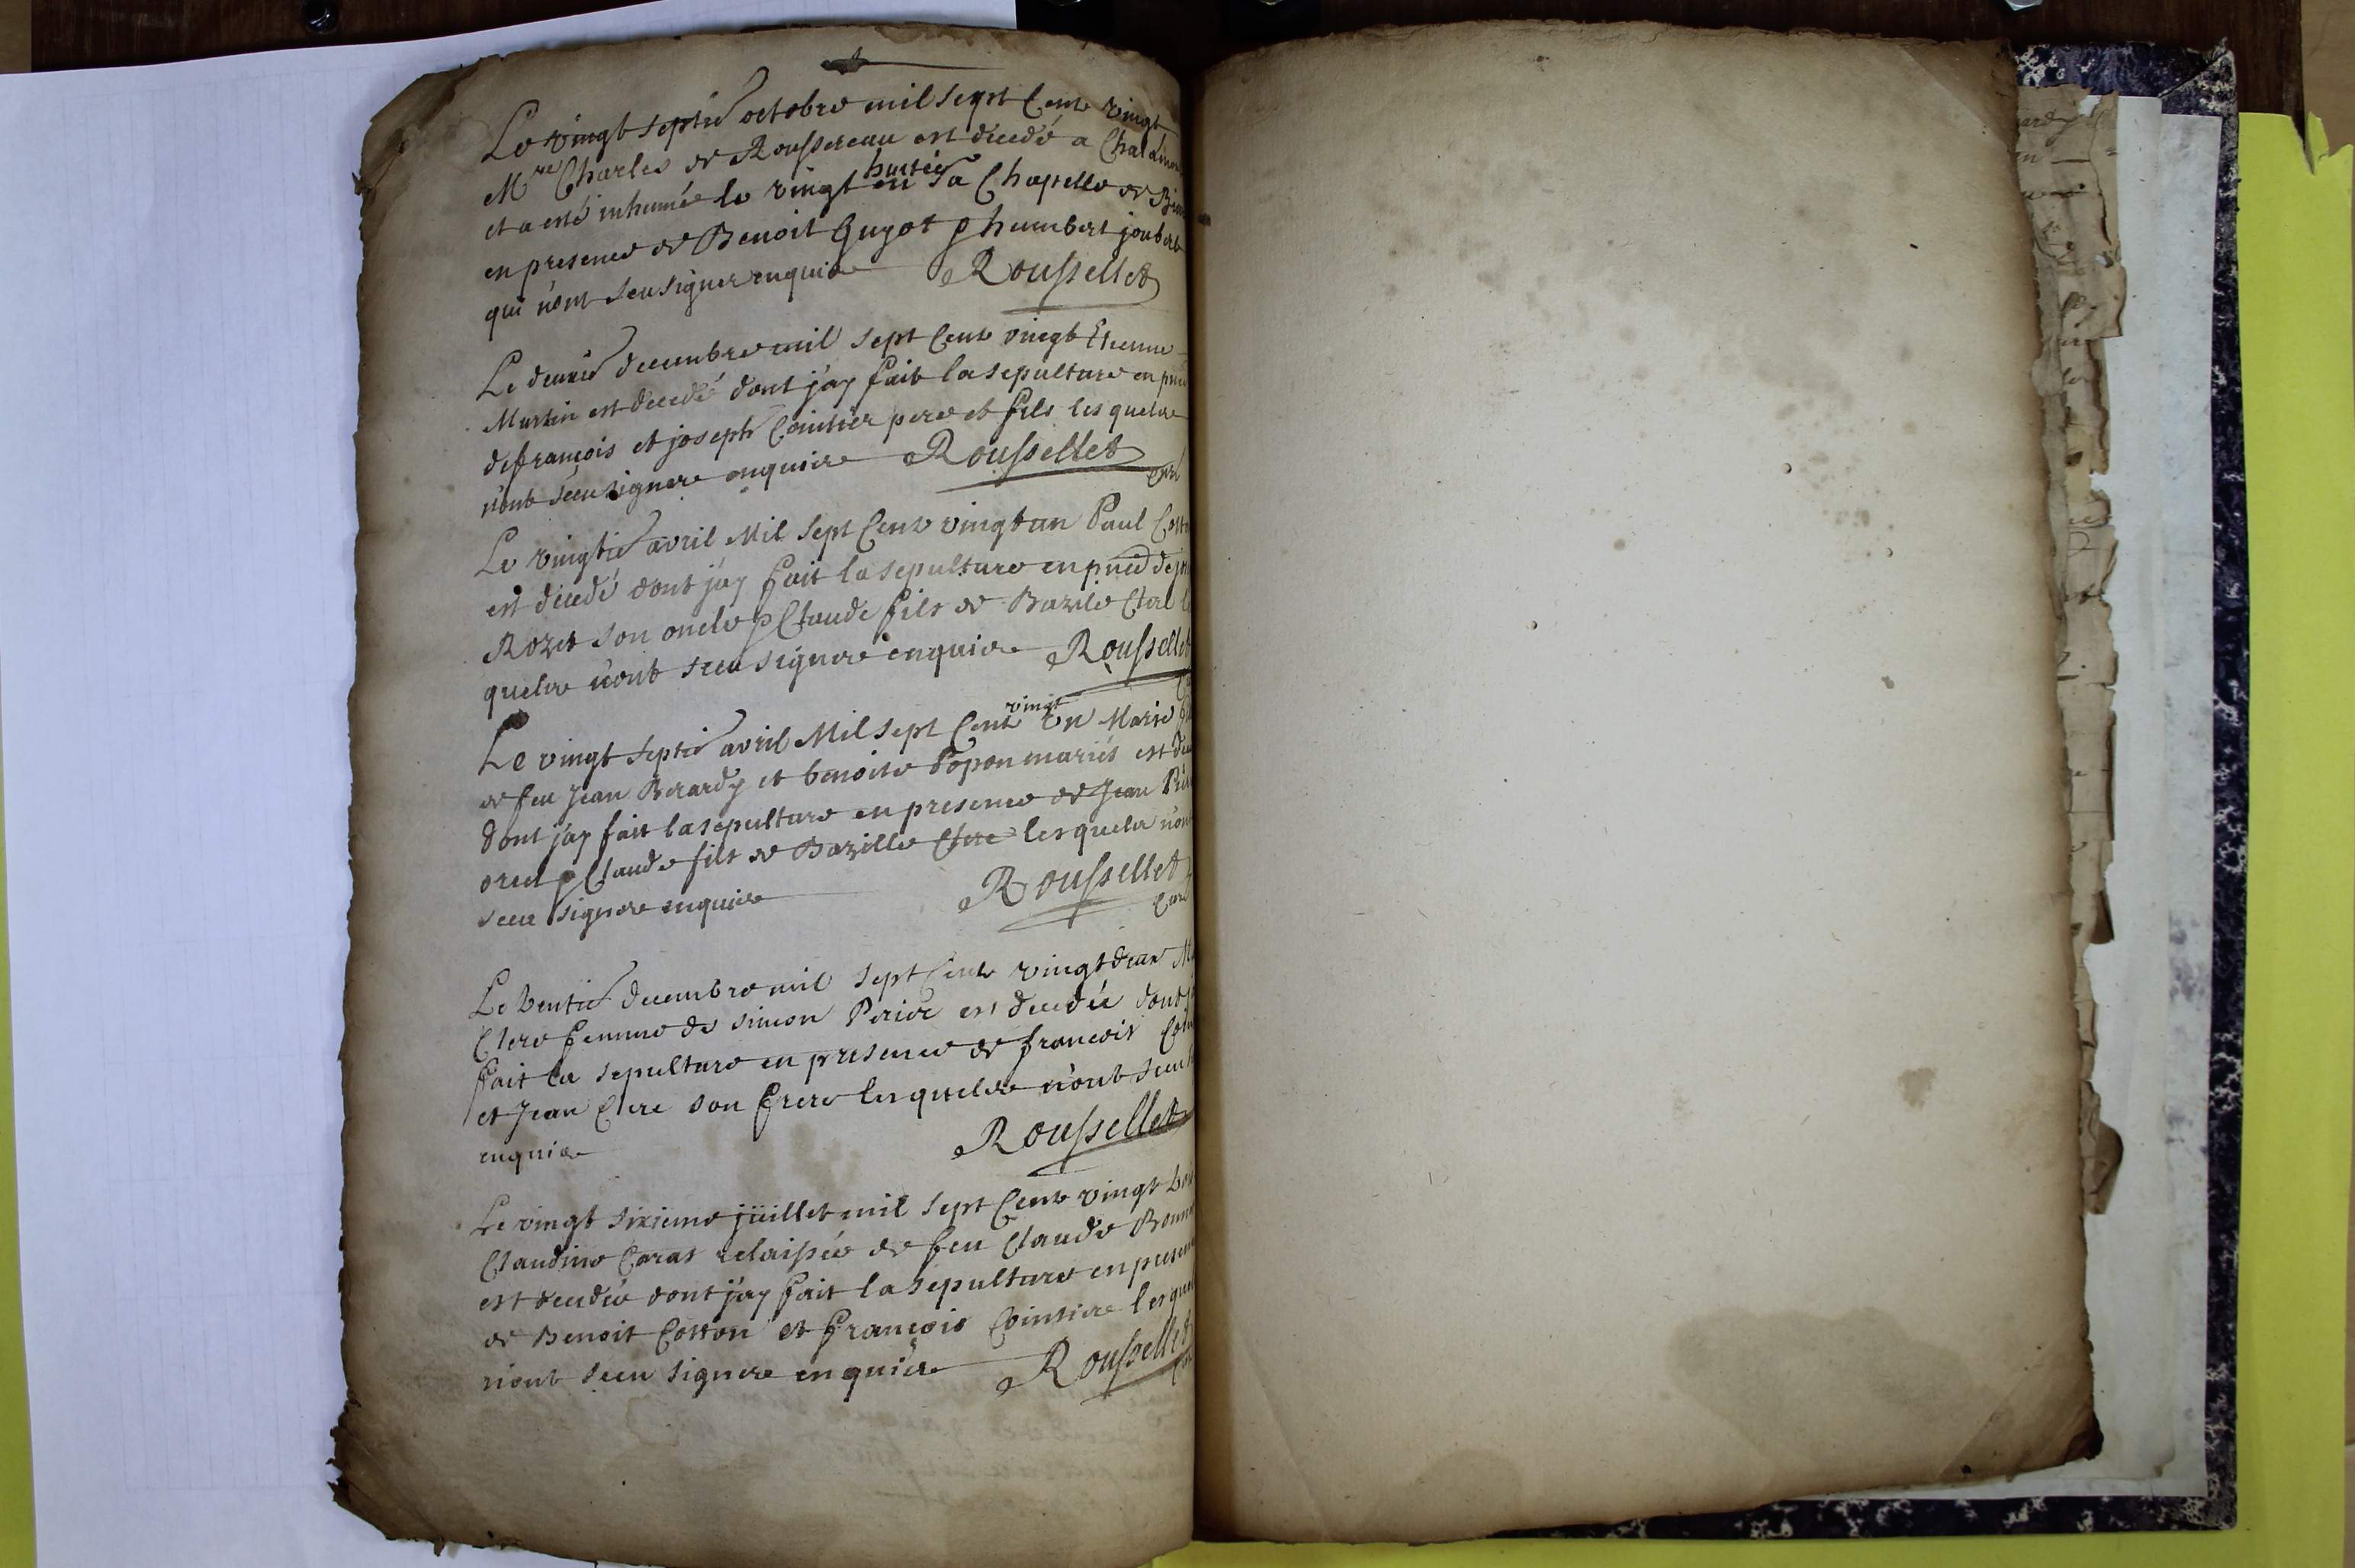 Le vingt septie octobre mil sept Cent vingt
Mre Charles de Roussereau est decedé a
et a esté inhumée le vingt huitie en sa Chapelle de
en presence de Benoit Guyot p humbert joubert
qui nont sceu signer enquis Roussellet
Le decembre mil sept Cent vingt Etienne
Martin est decedé dont j'ay fait la sepulture en
de francois et joseph Cointier pere et fils les quels
n'ont sceu signer enquis Roussellet
Le vingtie avril Mil Sept Cent vingt un Paul
est decedé dont j'ay fait la sepulture en
Rozet son oncle p Claude fils de Bazile
quels n'ont sceu signer enquis Roussellet
vingt
Le vingt septie avril Mil Sept Cent un Marie
de feu Jean Berardy et benoite Popon mariés est
dont j'ay fait la sepulture en presence de Jean
p Claude fils de Bazille Clere lesquels n'ont
sceu signer enquis Roussellet
Le decembre mil sept Cent vingt deux
Clere femme de simon Perier est decedée dont
fait la sepulture en presence de francois
et Jean Clere son frere lesquels n'ont sceu
enquis Roussellet
Le vingt sixieme juillet mil sept Cent vingt
Claudine Caras relaissée de feu Claude
est decedée dont j'ay fait la sepulture en
de Benoit Cotton et François Cointier
n'ont sceu signer enquis Roussellet